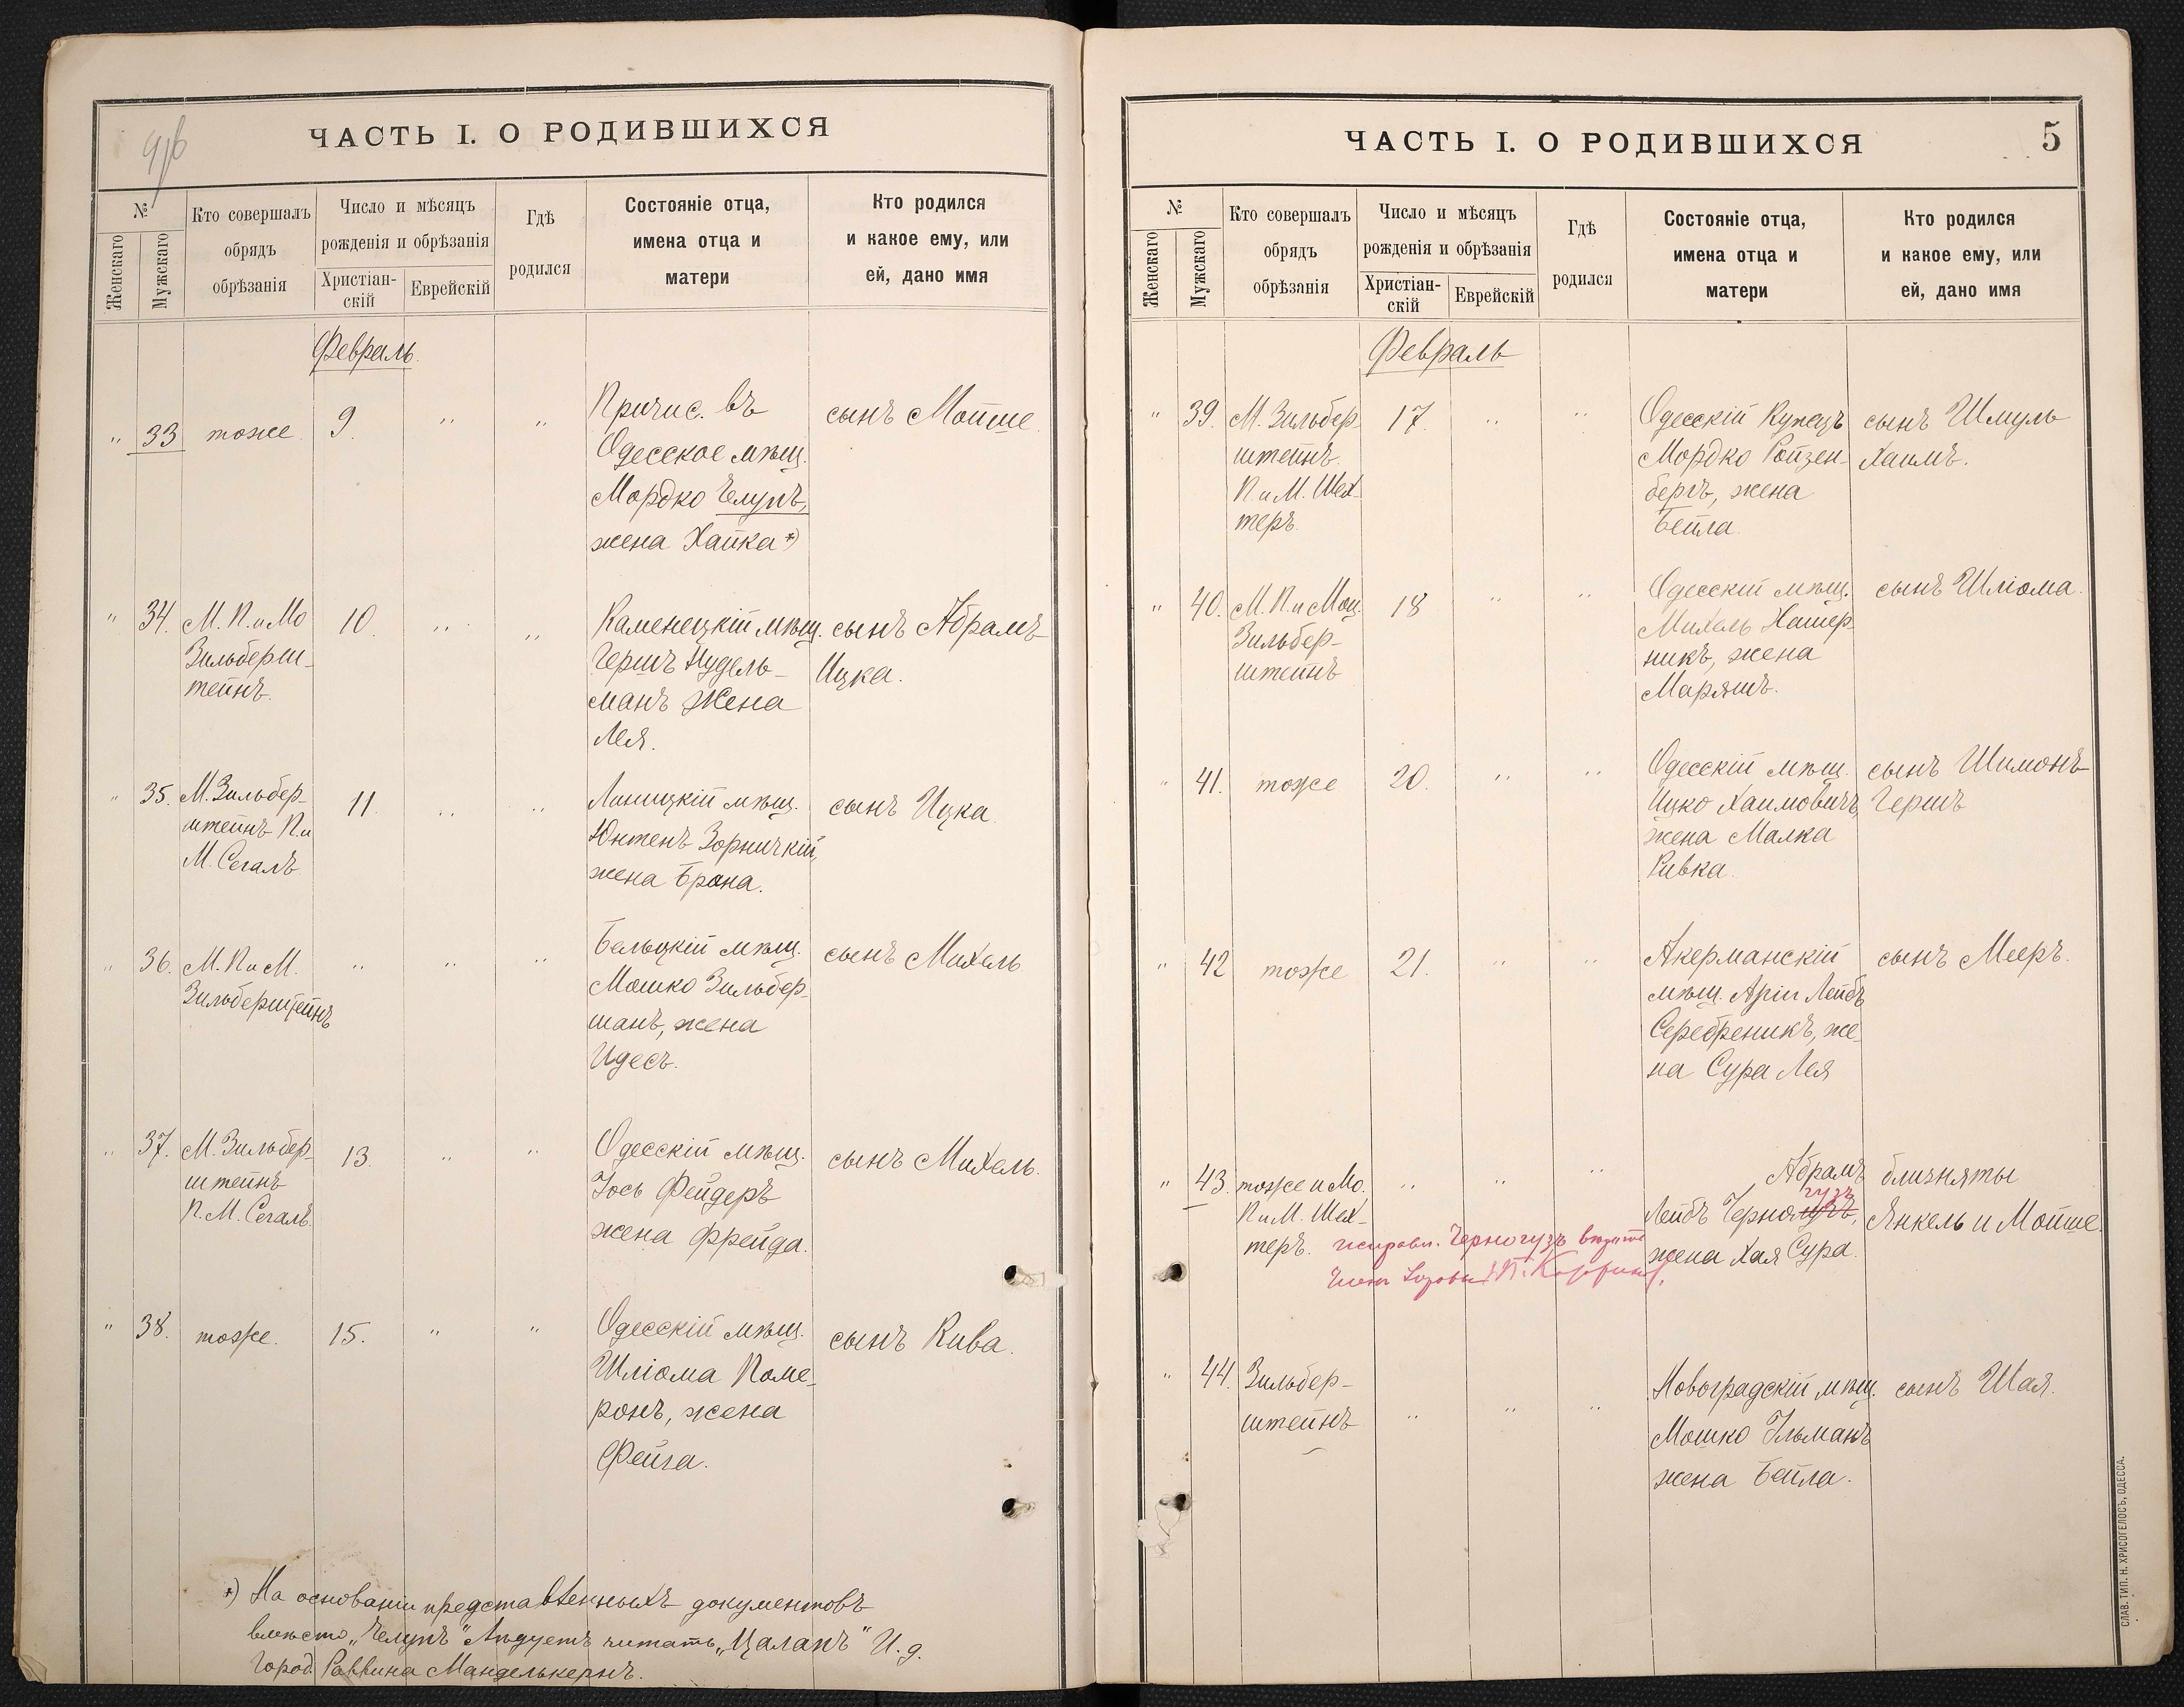 ЧАСТЬ I. О РОДИВШИХСЯ
№
Женскаго
Мужскаго
Кто совершалъ
обрядъ
обрѣзанія
Число и мѣсяцъ
рожденія и обрѣзанія
Христіан-
скій
Еврейскій
Гдѣ
родился
Состояніе отца,
имена отца и
матери
Кто родился
и какое ему, или
ей, дано имя
Февраль.
" 33 тоже 9. " "
Причис. въ
Одесское мѣщ.
Мордко Челупъ,
жена Хайка *)
сынъ Мойше.
" 34. М. П. и Мо
Зильберш-
тейнъ.
10. " "
Каменецкій мѣщ.
Гершъ Нудель-
манъ жена
Лея.
сынъ Абрамъ
Ицка.
" 35. М. Зильбер-
штейнъ П. и
М. Сегалъ
11. " "
мѣщ.
Зорничкій,
жена Брана.
сынъ Ицка.
" 36. М. П. и М.
Зильберштейнъ
" " "
Бельцкій мѣщ.
Мошко Зильбер-
манъ, жена
Идесъ.
сынъ Михель
" 37. М. Зильбер-
штейнъ
П. М. Сегалъ.
13. " "
Одесскій мѣщ.
Іось Фейдеръ
жена Фрейда.
сынъ Михель.
" 38. тоже. 15. " "
Одесскій мѣщ.
Шліома Поме-
ронъ, жена
Фейга.
сынъ Кива.
*) На основаніи представленныхъ документовъ
вмѣсто „Челупъ" слѣдуетъ читать „Цалапъ" И. д.
Город. Раввина Манделькернъ.
ЧАСТЬ I. О РОДИВШИХСЯ
5
№
Женскаго
Мужскаго
Кто совершалъ
обрядъ
обрѣзанія
Число и мѣсяцъ
рожденія и обрѣзанія
Христіан-
скій
Еврейскій
Гдѣ
родился
Состояніе отца,
имена отца и
матери
Кто родился
и какое ему, или
ей, дано имя
Февраль
" 39. М. Зильбер
штейнъ.
П. и М. Шех-
теръ.
17. " "
Одесскій Купецъ
Мордко Ройзен-
бергъ, жена
Бейла.
сынъ Шмуль
Хаимъ.
" 40. М. П. и Моц.
Зильбер-
штейнъ
18 " "
Одесскій мѣщ.
Михель Кашер-
никъ, жена
Маряшъ.
сынъ Шліома.
" 41. тоже 20. " "
Одесскій мѣщ.
Ицко Хаимовичъ,
жена Малка
Ривка.
сынъ Шимонъ
Гершъ
" 42 тоже 21. " "
Акерманскій
мѣщ. Лейбъ
Серебреникъ, же-
на Сура Лея
сынъ Мееръ.
" 43. тоже и Мо.
П. и М. Шех-
теръ.
" " "
Абрамъ
гузъ
Лейбъ Черно
жена Хая Сура.
близняты
Янкель и Мойше.
исправл. Черногузъ
" 44. Зильбер-
штейнъ
" " "
Новоградскій мѣщ.
Мошко Ильманъ
жена Бейла.
сынъ Шая.
СЛАВ. ТИП. Н. ХРИСОГЕЛОСЪ, ОДЕССА.